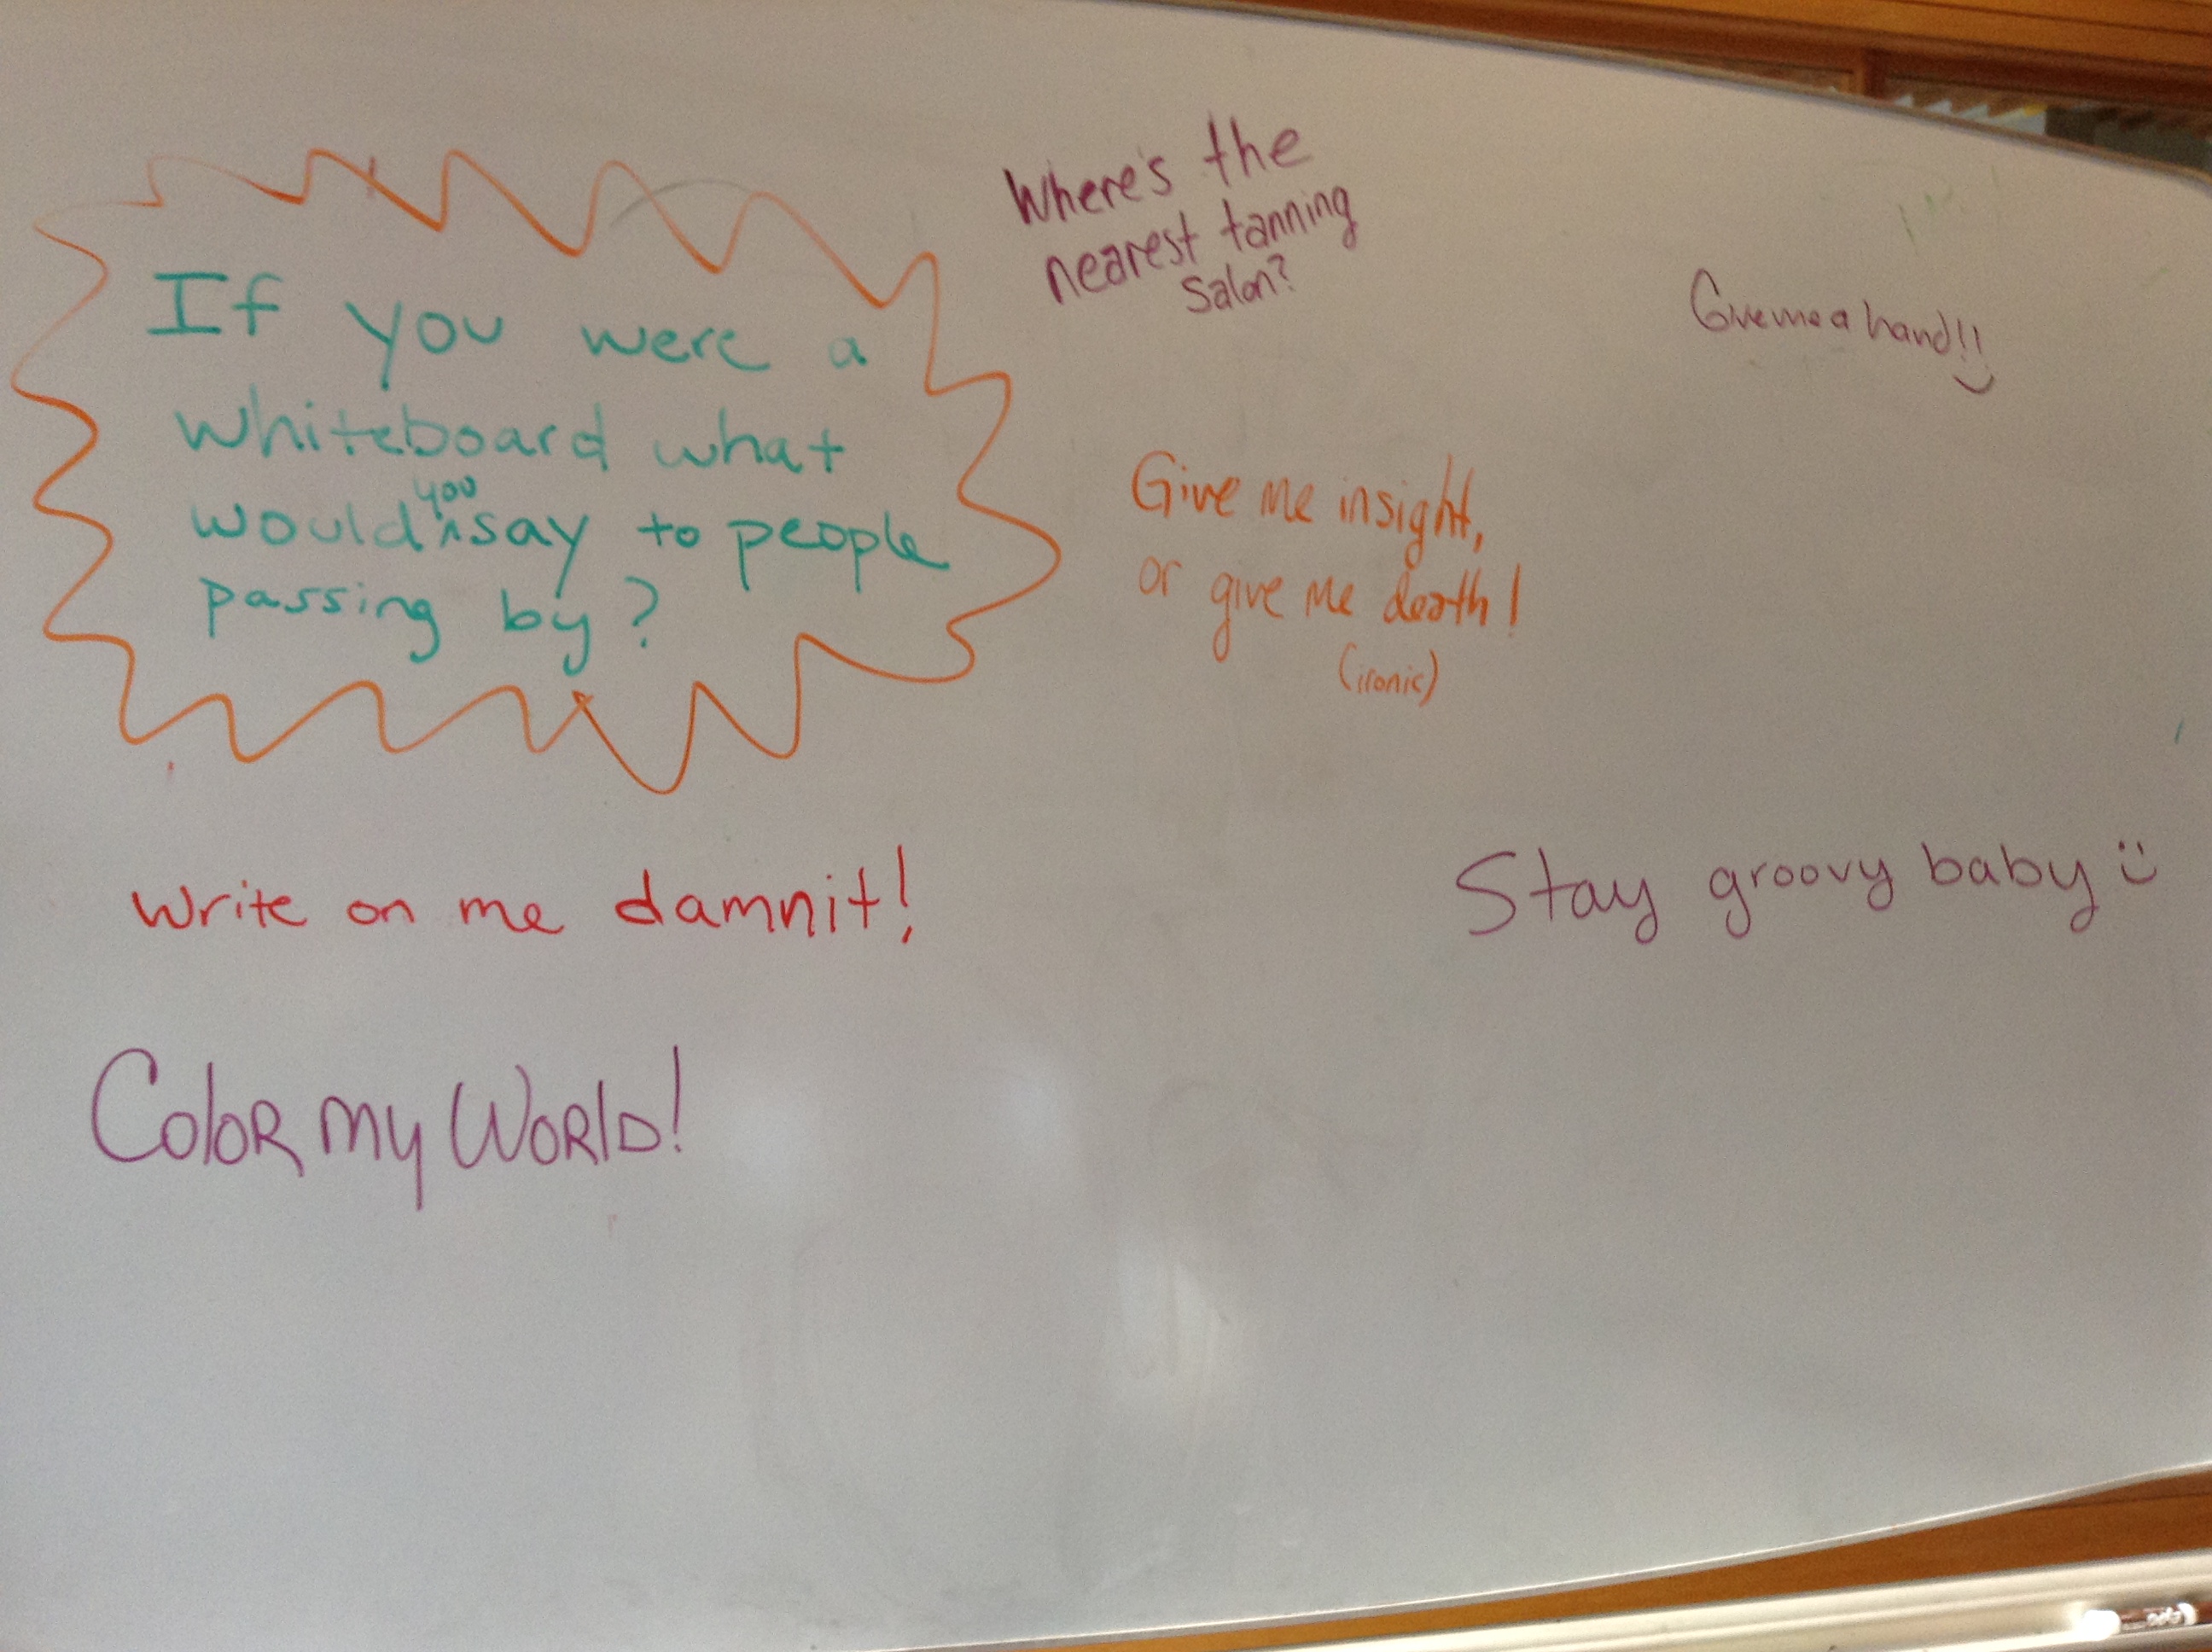 If you were a
whiteboard what
would you say to people
passing by?
Where's the
nearest tanning
salon?
Give me a hand!!
Give me insight,
or give me death!
(ironic)
write on me damnit!
Stay groovy baby
Color my World!